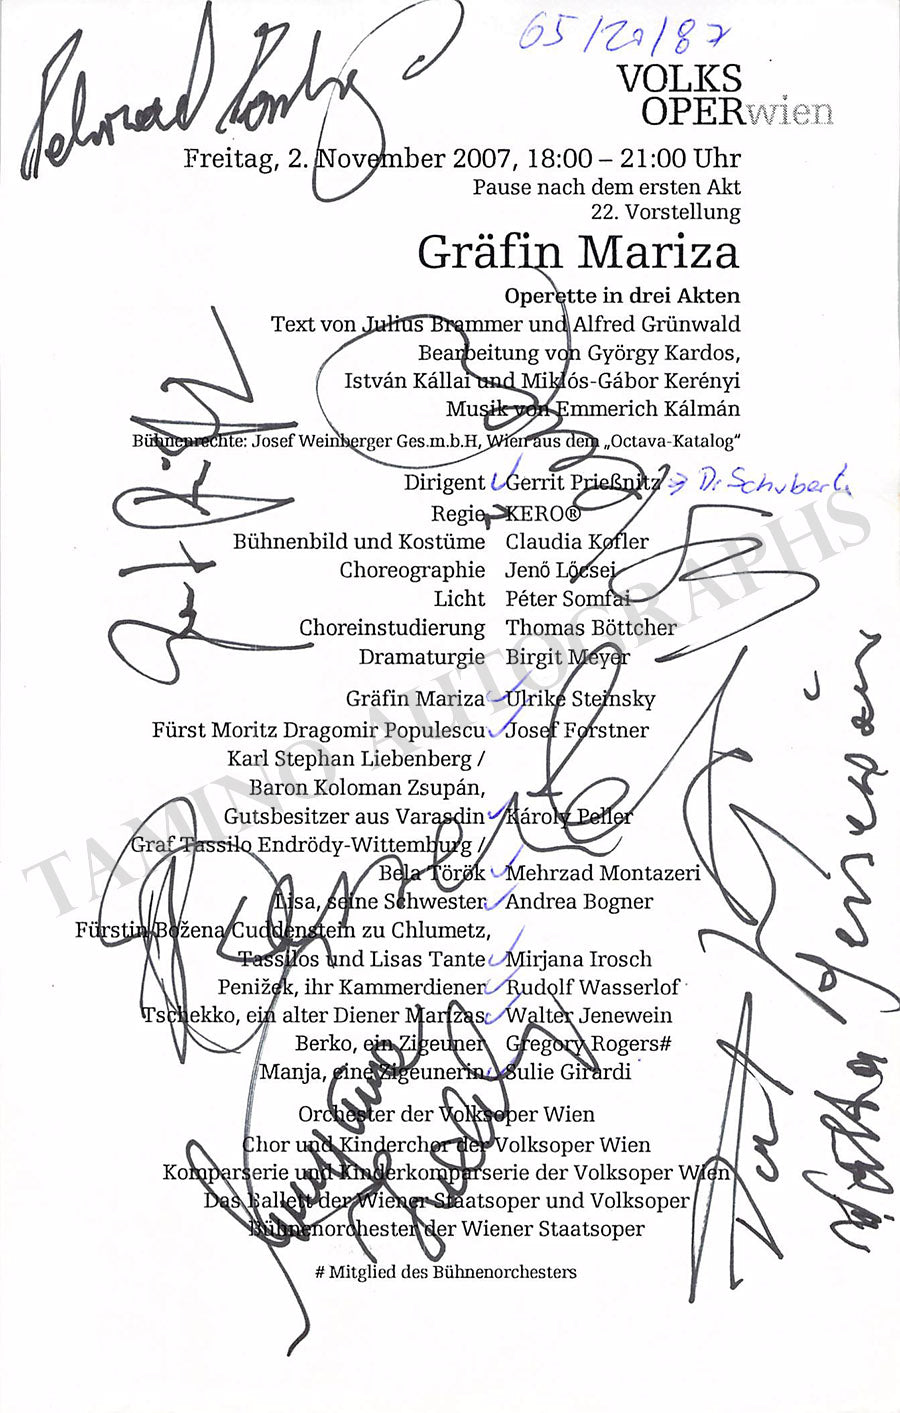 65/20/87
VOLKS
OPERwien
Freitag, 2. November 2007, 18:00 – 21:00 Uhr
Pause nach dem ersten Akt
22. Vorstellung
Gräfin Mariza
Operette in drei Akten
Text von Julius Brammer und Alfred Grünwald
Bearbeitung von György Kardos,
István Kállai und Miklós-Gábor Kerényi
Musik von Emmerich Kálmán
Bühnenrechte: Josef Weinberger Ges.m.b.H, Wien aus dem „Octava-Katalog“
Dirigent Gerrit Prießnitz → Dr Schubert
Regie KERO®
Bühnenbild und Kostüme Claudia Kofler
Choreographie Jenő Lőcsei
Licht Péter Somfai
Choreinstudierung Thomas Böttcher
Dramaturgie Birgit Meyer
Gräfin Mariza Ulrike Steinsky
Fürst Moritz Dragomir Populescu Josef Forstner
Karl Stephan Liebenberg /
Baron Koloman Zsupán,
Gutsbesitzer aus Varasdin Károly Peller
Graf Tassilo Endrödy-Wittemburg /
Bela Török Mehrzad Montazeri
Lisa, seine Schwester Andrea Bogner
Fürstin Božena Cuddenstein zu Chlumetz,
Tassilos und Lisas Tante Mirjana Irosch
Penižek, ihr Kammerdiener Rudolf Wasserlof
Tschekko, ein alter Diener Marizas Walter Jenewein
Berko, ein Zigeuner Gregory Rogers#
Manja, eine Zigeunerin Sulie Girardi
Orchester der Volksoper Wien
Chor und Kinderchor der Volksoper Wien
Komparserie und Kinderkomparserie der Volksoper Wien
Das Ballett der Wiener Staatsoper und Volksoper
Bühnenorchester der Wiener Staatsoper
# Mitglied des Bühnenorchesters
TAMINO AUTOGRAPHS